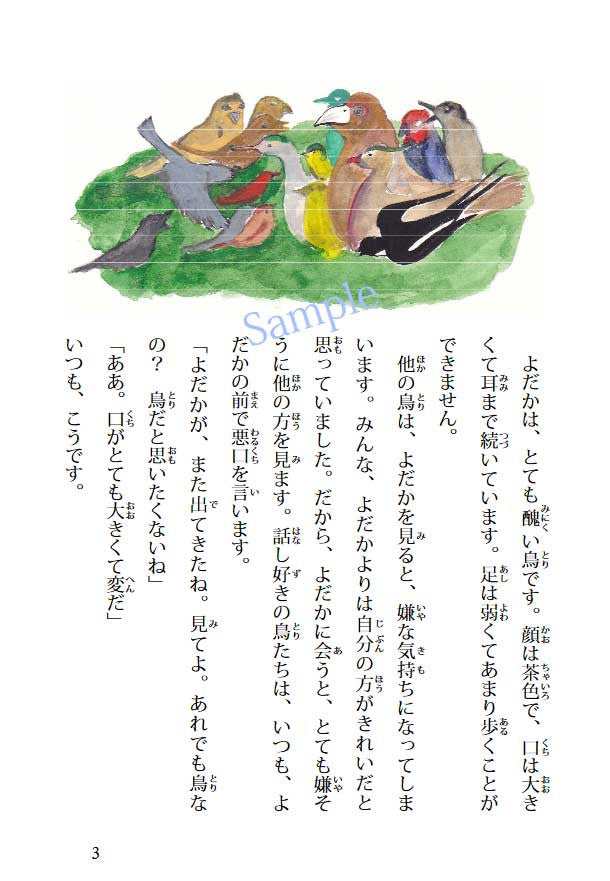 Sample
よだかは、とても醜い鳥です。顔は茶色で、口は大き
くて耳まで続いています。足は弱くてあまり歩くことが
できません。
他の鳥は、よだかを見ると、嫌な気持ちになってしま
います。みんな、よだかよりは自分の方がきれいだと
思っていました。だから、よだかに会うと、とても嫌そ
うに他の方を見ます。話し好きの鳥たちは、いつも、よ
だかの前で悪口を言います。
「よだかが、また出てきたね。見てよ。あれでも鳥な
の？　鳥だと思いたくないね」
「ああ。口がとても大きくて変だ」
いつも、こうです。
3